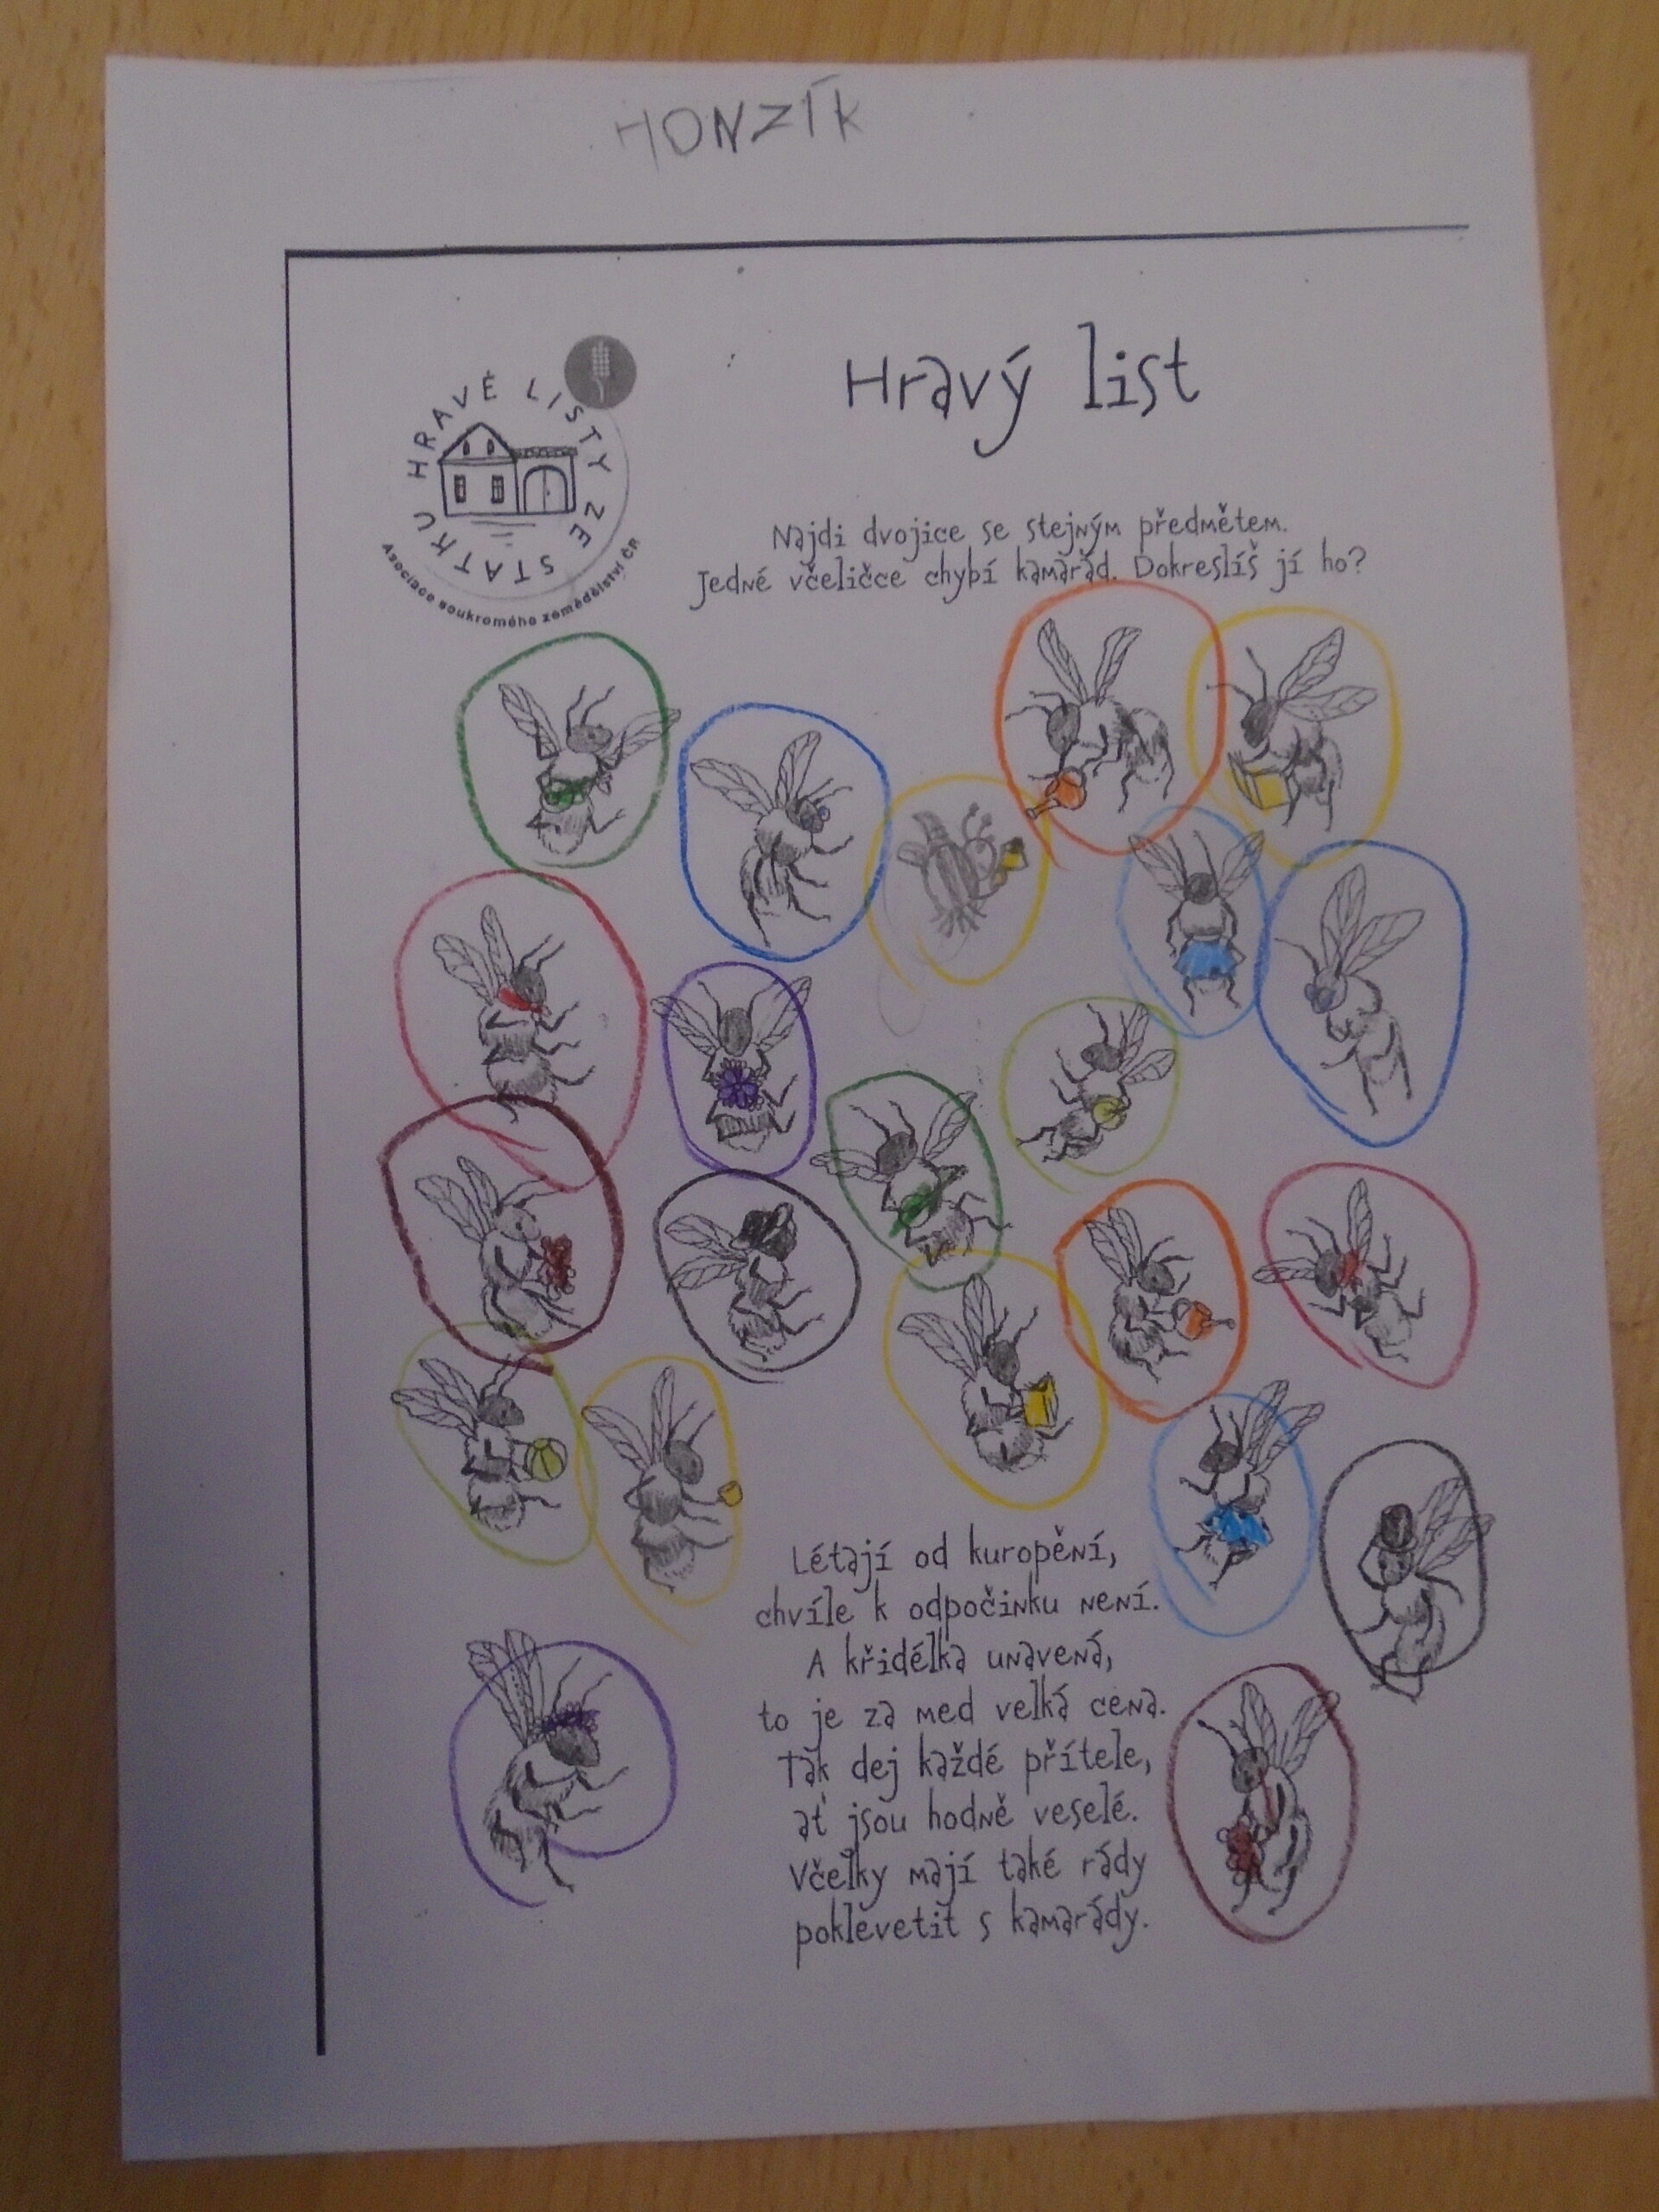 HONZÍK
HRAVÉ LISTY ZE STATKU
Asociace soukromého zemědělství ČR
Hravý list
Najdi dvojice se stejným předmětem.
Jedné včeličce chybí kamarád. Dokreslíš jí ho?
Létají od kuropění,
chvíle k odpočinku není.
A křidélka unavená,
to je za med velká cena.
Tak dej každé přítele,
ať jsou hodně veselé.
Včelky mají také rády
poklevetit s kamarády.